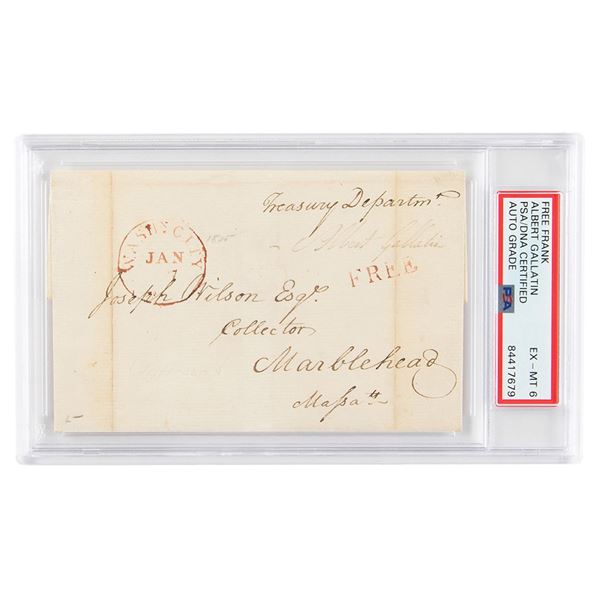 Treasury Departmt.
WASHN. CITY
JAN
1
1805
Albert Gallatin
FREE
Joseph Wilson Esqr.
Collector
Marblehead
Massatts
FREE FRANK
ALBERT GALLATIN
PSA/DNA CERTIFIED
AUTO GRADE
EX – MT 6
PSA
84417679